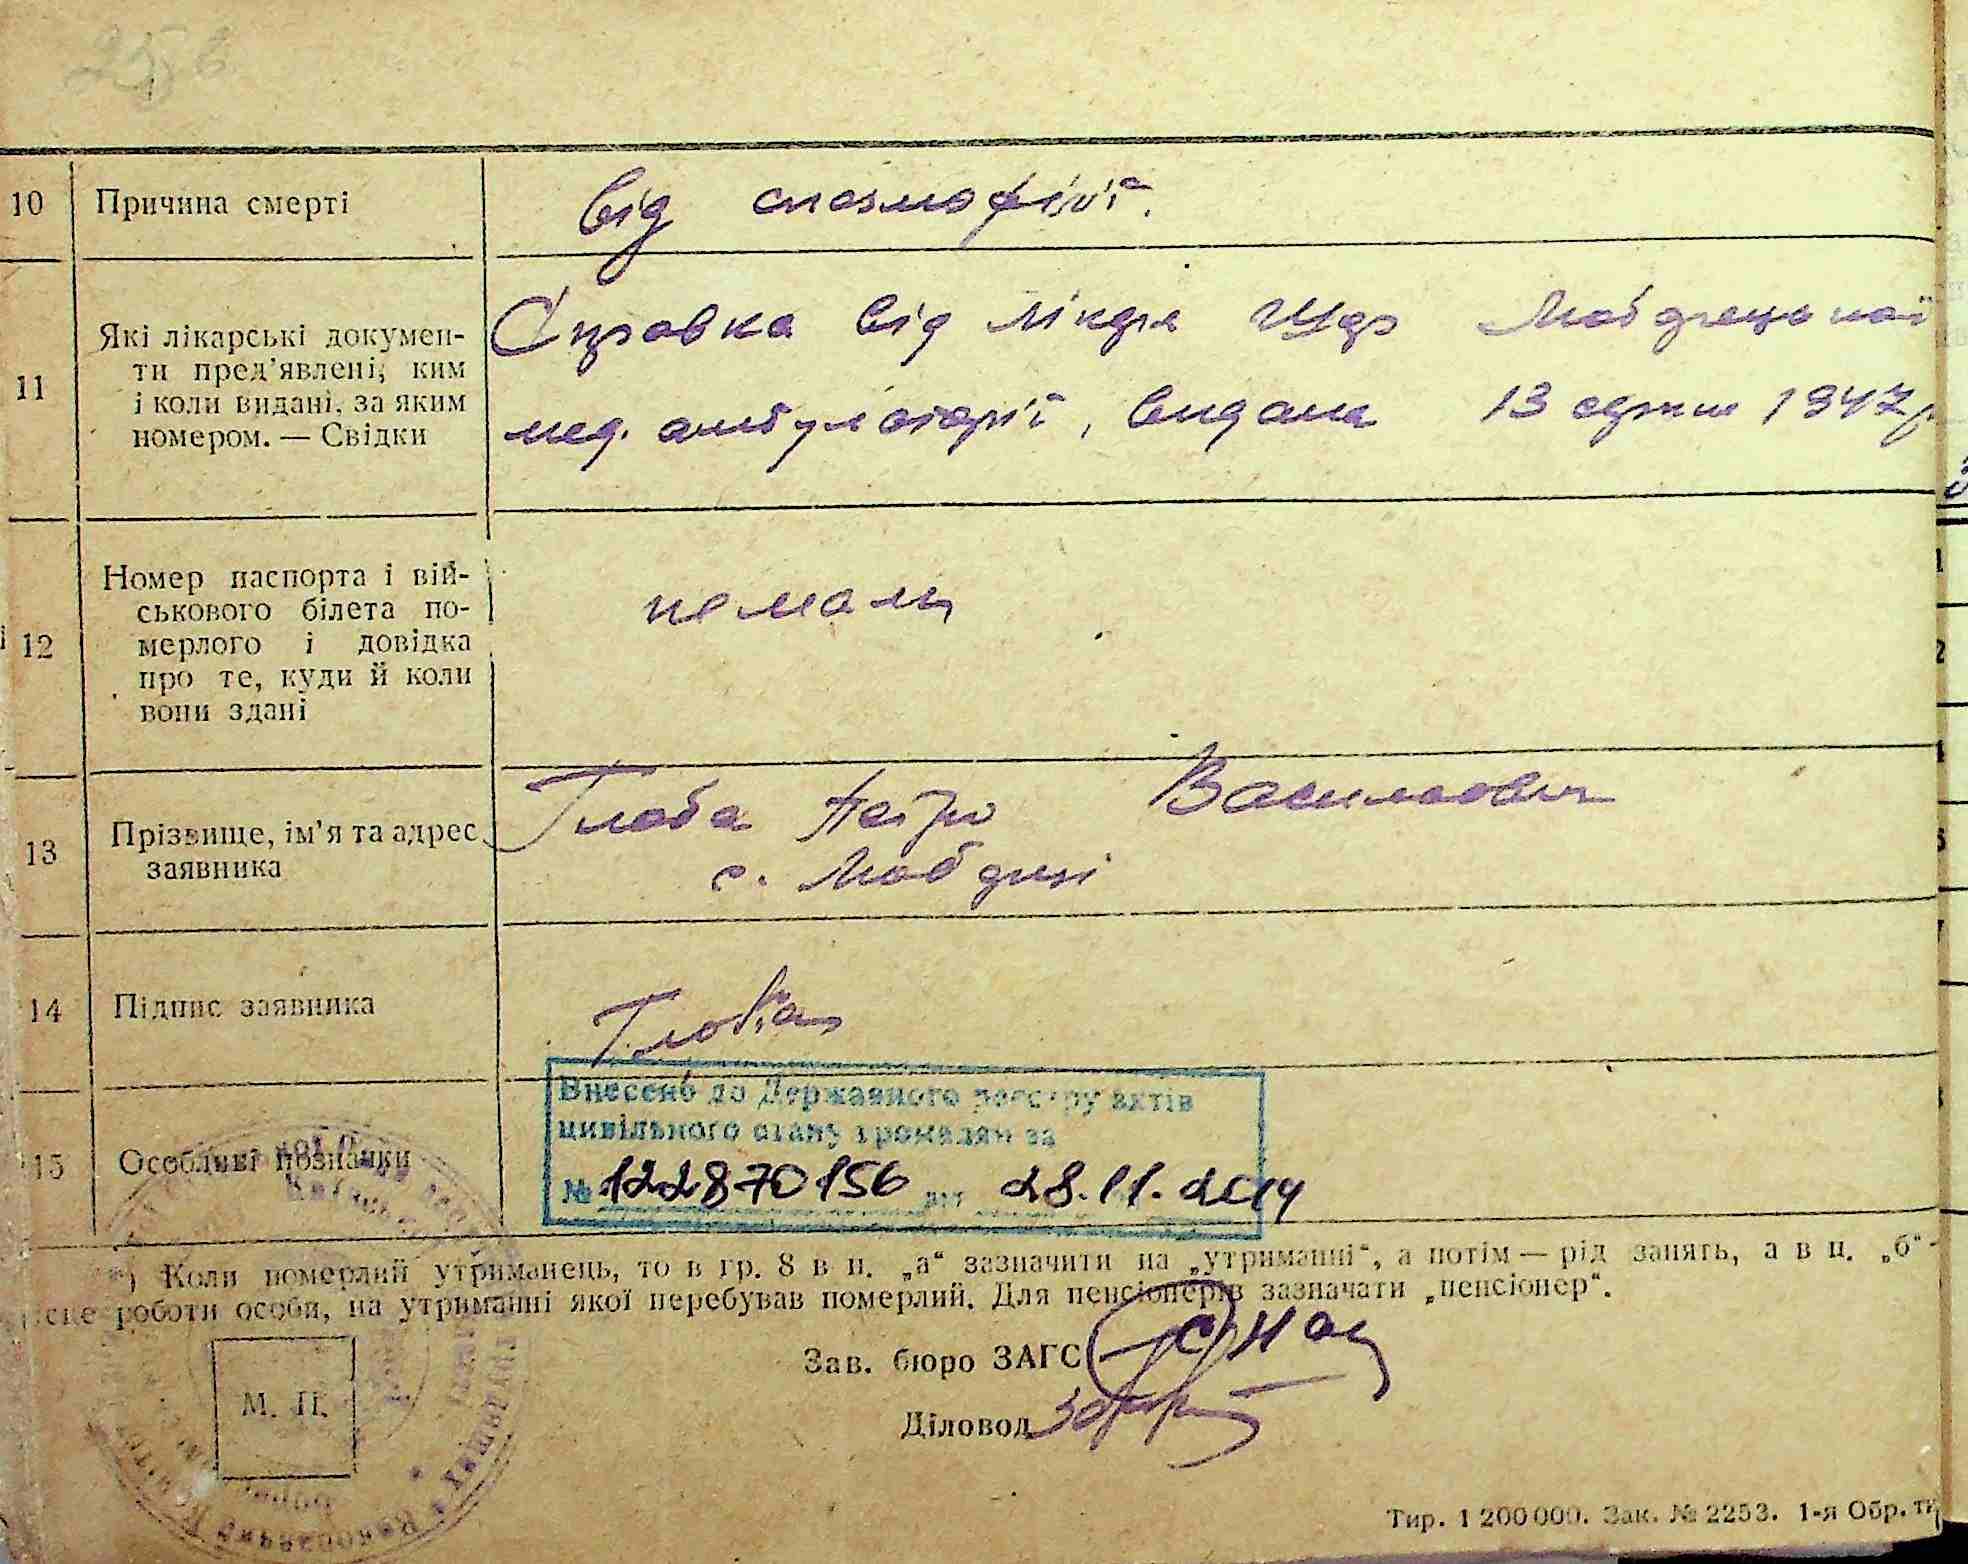 10 Причина смерті
від спазмофілії.
11 Які лікарські докумен-
ти пред’явлені, ким
і коли видані, за яким
номером. — Свідки
Справка від лікаря
мед. амбулаторії, видана 13 серпня 1947 р
12 Номер паспорта і вій-
ськового білета по-
мерлого і довідка
про те, куди й коли
вони здані
немали
13 Прізвище, ім’я та адрес
заявника
Глоба Петро Васильович
с.
14 Підпис заявника
Глоба
15 Особливі позначки
Внесено до Державного реєстру актів
цивільного стану громадян за
№ 122870156 від 28.11.2014
*) Коли померлий утриманець, то в гр. 8 в п. „а“ зазначити на „утриманні“, а потім — рід занять, а в п. „б“ -
роботи особи, на утриманні якої перебував померлий. Для пенсіонерів зазначати „пенсіонер“.
Зав. бюро ЗАГС
М. П.
Діловод
Тир. 1 200 000. Зак. № 2253. 1-я Обр. ти